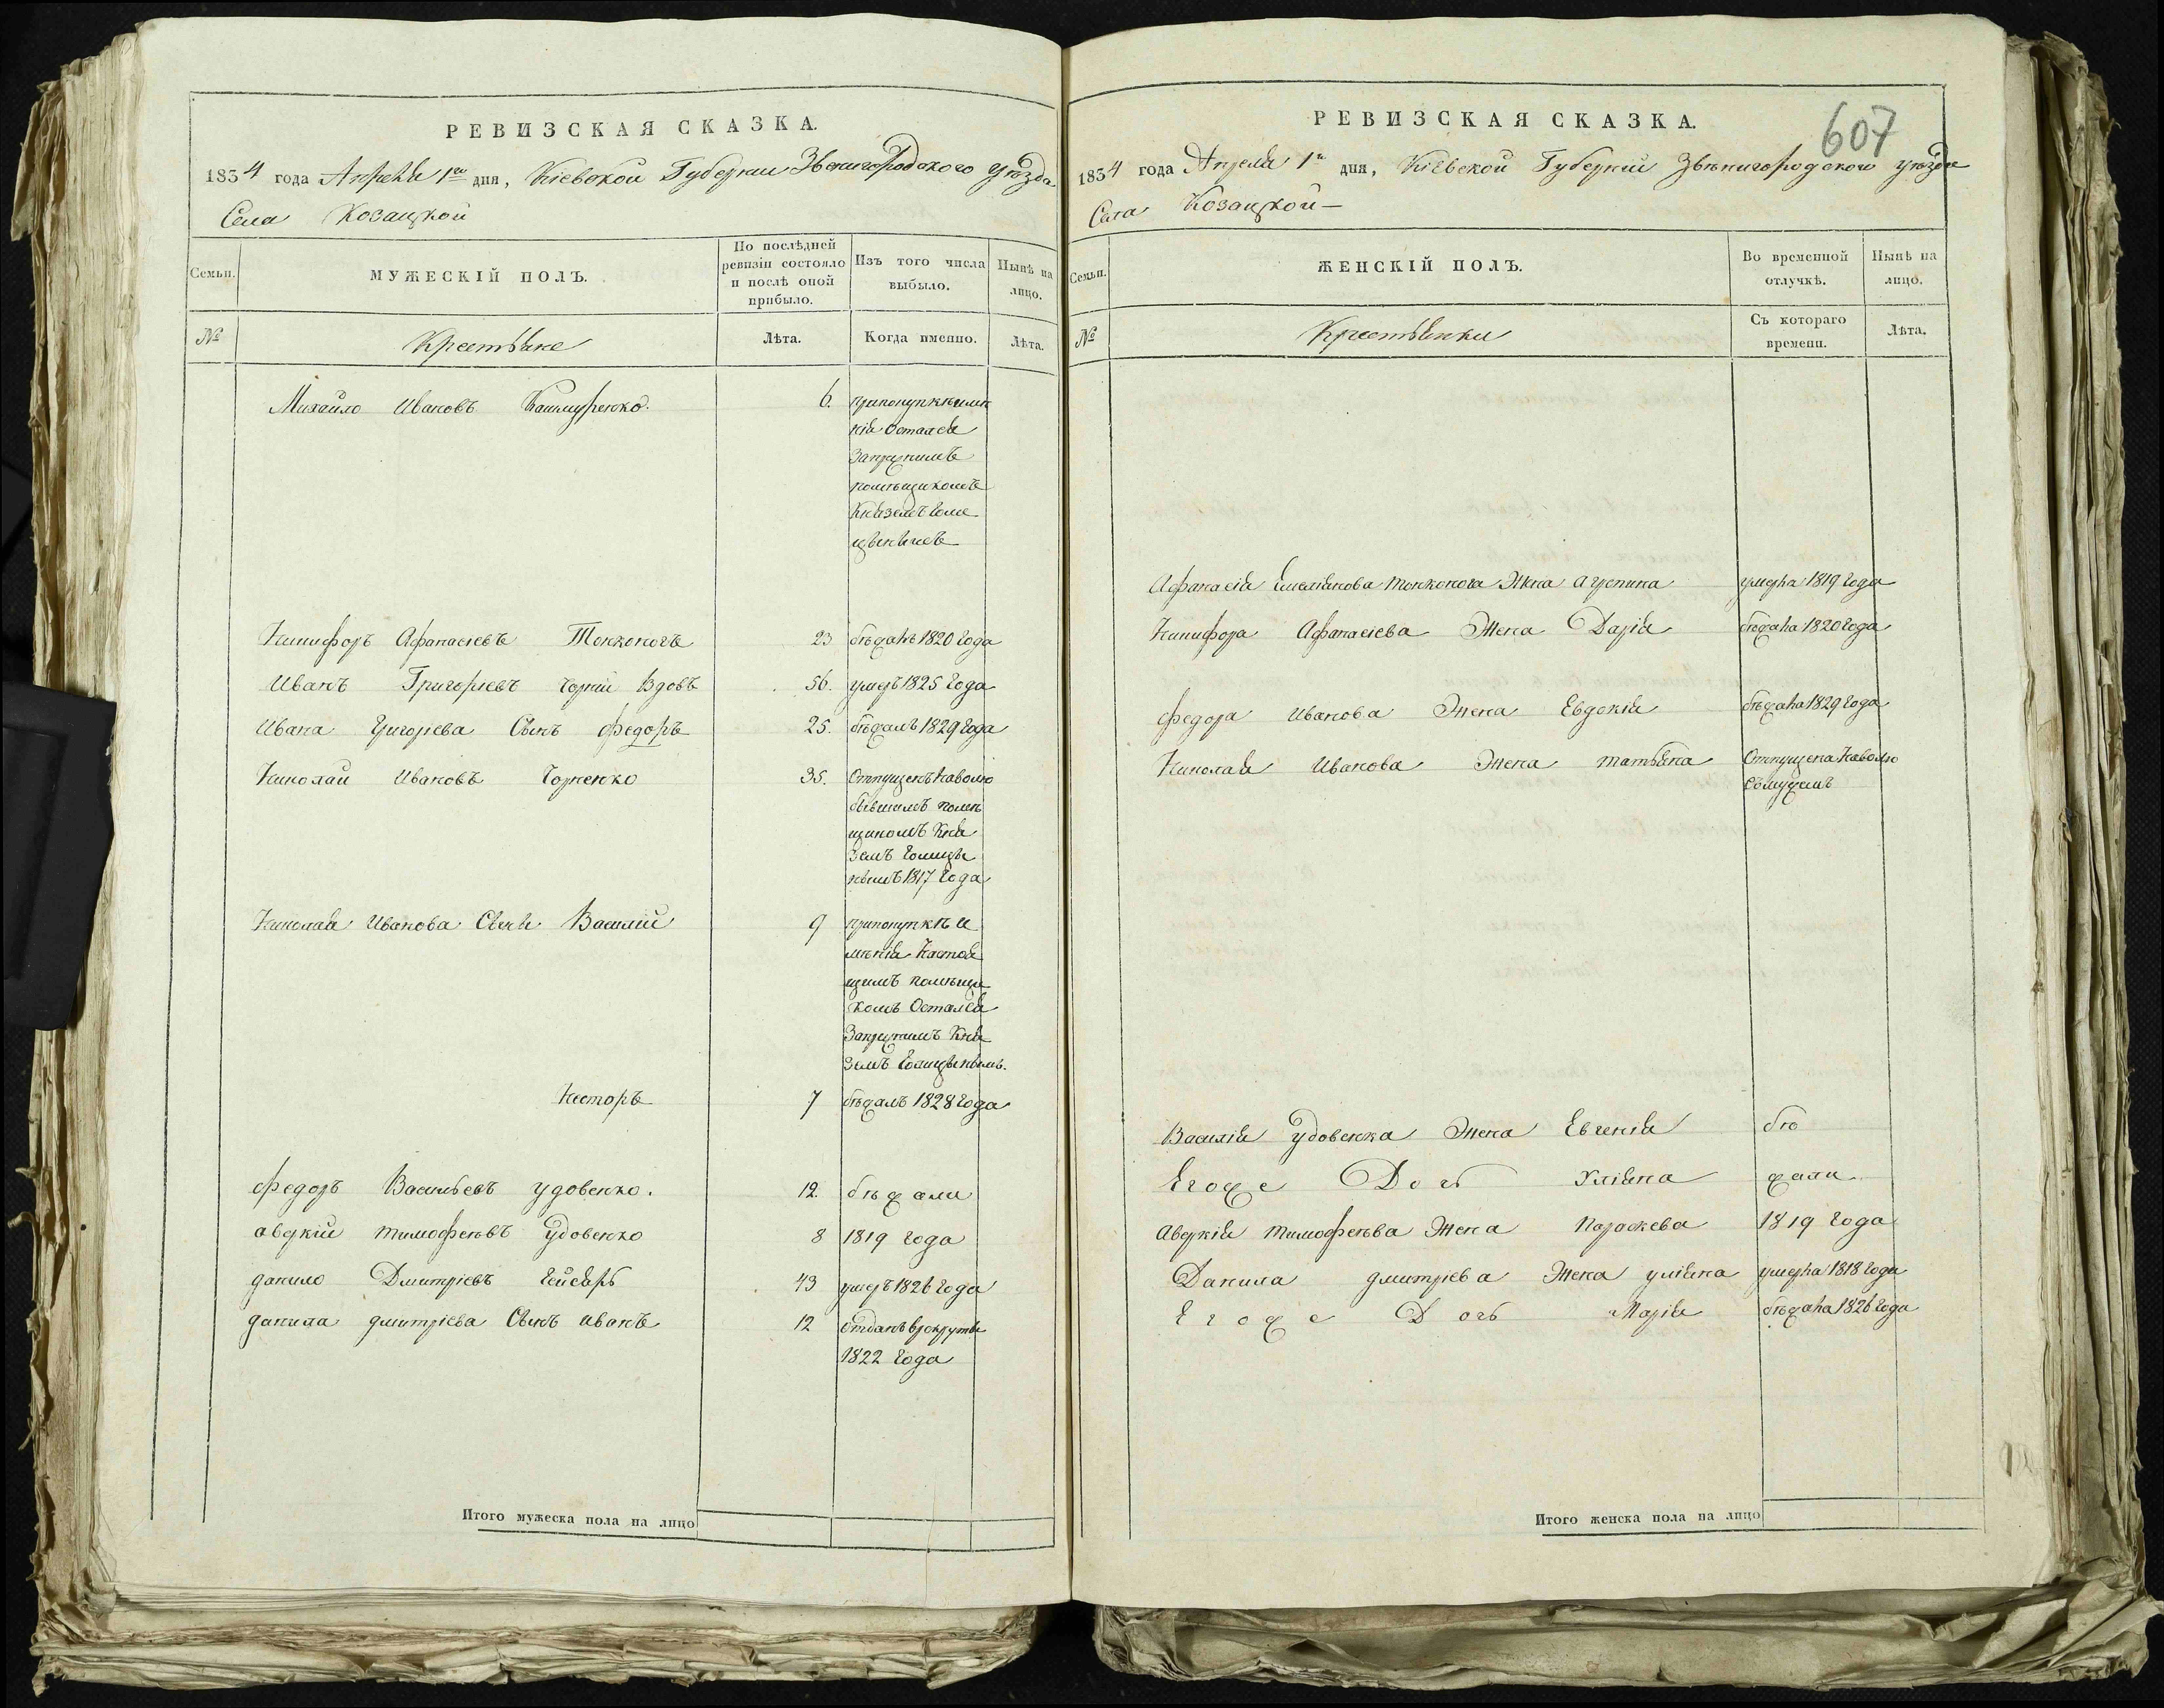 РЕВИЗСКАЯ СКАЗКА.
1834 года Апреля 1го дня, Кіевской Губерніи Звенигородского уѣзда
Села Козацкой
Семьи.
МУЖЕСКІЙ ПОЛЪ.
По послѣдней ревизіи состояло и послѣ оной прибыло.
Изъ того числа выбыло.
Нынѣ на лицо.
№
Крестьяне
Лѣта.
Когда именно.
Лѣта.
Михайло Ивановъ
6.
припокупкѣимѣ
нія остался
запрежнимъ
помѣщикомъ
Княземъ Голи
цынымъ
Никифоръ Афанасіевъ Тонконогъ
23
бѣжалъ 1820 года
Иванъ Григоріевъ Чорній Вдовъ
56.
умеръ 1825 года
Ивана Григоріева Сынъ Федоръ
25.
бѣжалъ 1829 года
Николай Ивановъ Чорненко
35.
Отпущенъ наволю
бывшимъ помѣ
щикомъ Кня
земъ Голицы
нымъ 1817 года
Николая Иванова Сынъ Василій
9
припокупкѣ и
мѣнія настоя
щимъ помѣщи
комъ остался
запрежнимъ Кня
земъ Голицынымъ.
Несторъ
7
бѣжалъ 1828 года
Федоръ Васильевъ Удовенко.
12.
бѣжали
Аверкій Тимофеѣвъ Удовенко
8
1819 года
Данило Дмитріевъ
43
умеръ 1826 года
Данила Дмитріева Сынъ Иванъ
12
отданъ врекруты
1822 года
Итого мужеска пола на лицо
РЕВИЗСКАЯ СКАЗКА.
607
1834 года Апреля 1го дня, Кіевской Губерніи Звѣнигородского уѣзда
Села Козацкой —
Семьи.
ЖЕНСКІЙ ПОЛЪ.
Во временной отлучкѣ.
Нынѣ на лицо.
№
Крестьянки
Съ котораго времени.
Лѣта.
Афанасія Емельянова Тонконога Жена Агрепина
умерла 1819 года
Никифора Афанасіева Жена Дарія
бѣжала 1820 года
Федора Иванова Жена Евдокія
бѣжала 1829 года
Николая Иванова Жена Татьяна
Отпущена наволю
съмужемъ
Василія Удовенка Жена Евгенія
бѣ
Егоже Дочь Уліяна
жали
Аверкія Тимофеѣва Жена Параскева
1819 года
Данила Дмитріева Жена Уліяна
умерла 1818 года
Егоже Дочь Марія
бѣжала 1826 года
Итого женска пола на лицо